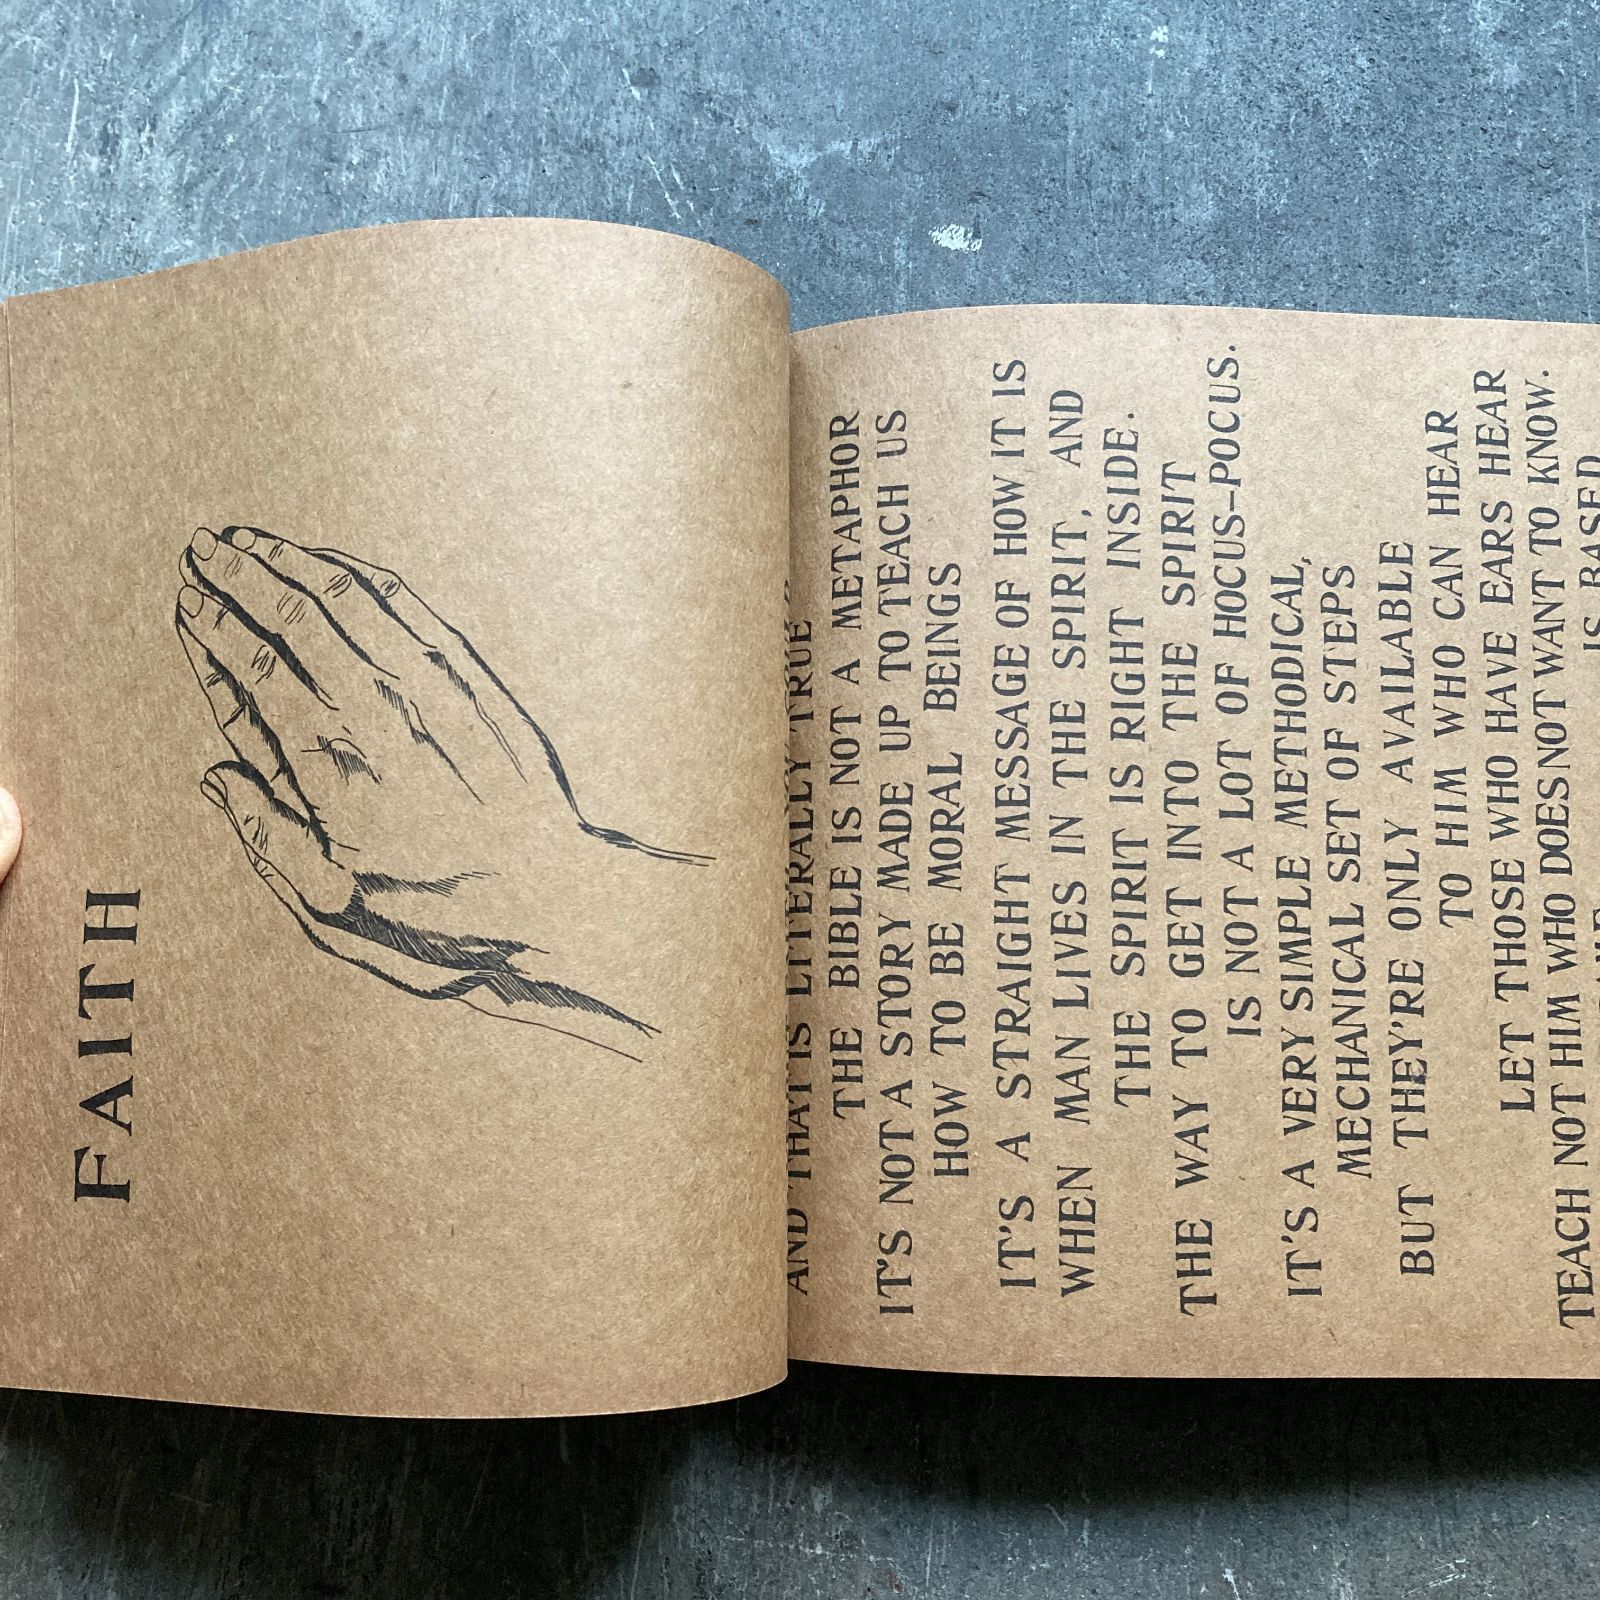 FAITH
AND THAT IS LITERALLY TRUE
THE BIBLE IS NOT A METAPHOR
IT'S NOT A STORY MADE UP TO TEACH US
HOW TO BE MORAL BEINGS
IT'S A STRAIGHT MESSAGE OF HOW IT IS
WHEN MAN LIVES IN THE SPIRIT, AND
THE SPIRIT IS RIGHT INSIDE.
THE WAY TO GET INTO THE SPIRIT
IS NOT A LOT OF HOCUS-POCUS.
IT'S A VERY SIMPLE METHODICAL,
MECHANICAL SET OF STEPS
BUT THEY'RE ONLY AVAILABLE
TO HIM WHO CAN HEAR
LET THOSE WHO HAVE EARS HEAR
TEACH NOT HIM WHO DOES NOT WANT TO KNOW.
IS BASED